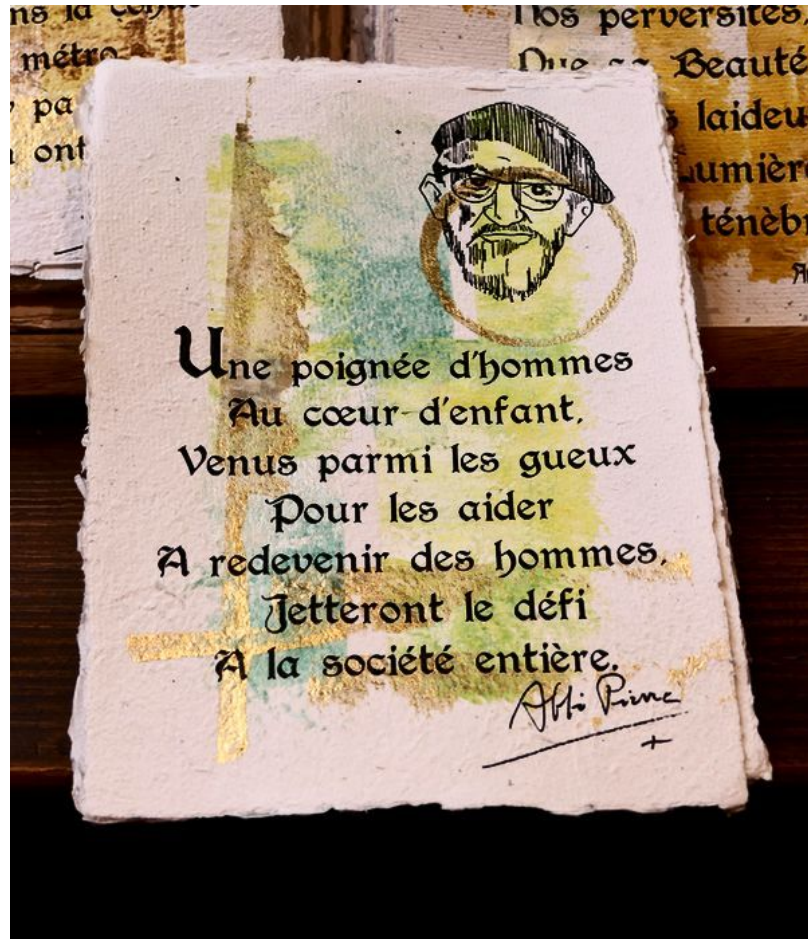 ns la
métro
pa
ont
Nos perversités
Que sa Beauté
laideu
Lumière
ténèb
Une poignée d'hommes
Au cœur d'enfant,
Venus parmi les gueux
Pour les aider
A redevenir des hommes,
Jetteront le défi
A la société entière.
Abbé Pierre